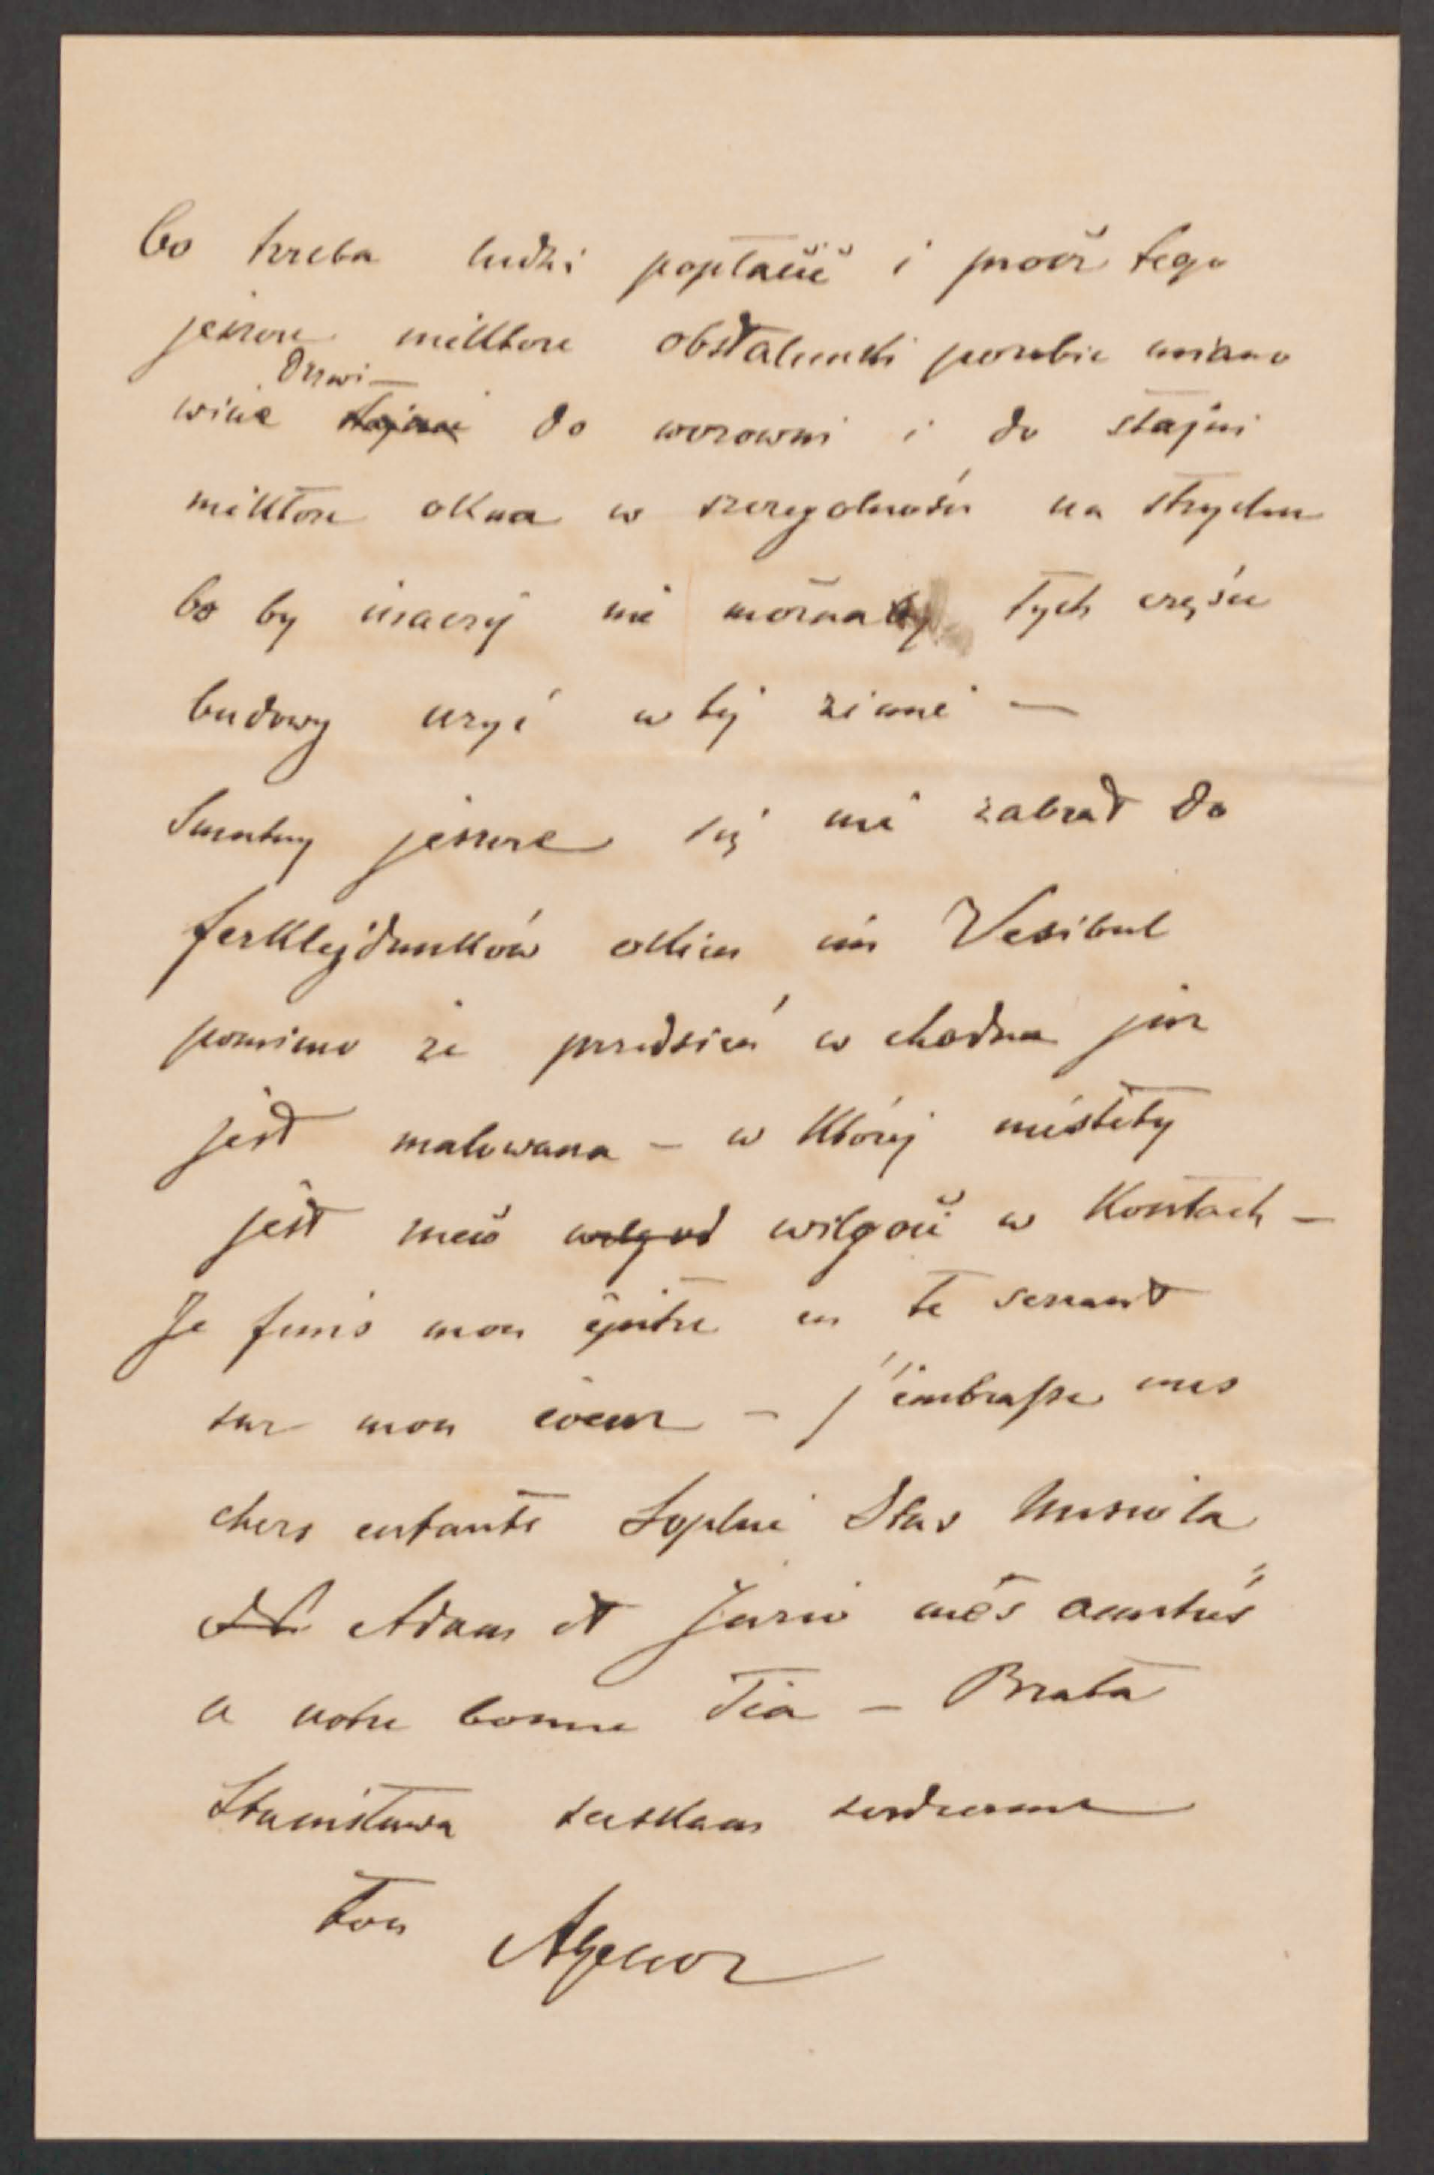 bo trzeba ludzi popłacić i procz tego
jeszcze niektore obstalunki porobić miano
wicie drzwi do wozowni i do stajni
niektore okna w szczegolności na strychu
bo by inaczej nie można tych części
budowy użyć w tej zimie —
Smutny jeszcze się nie zabrał do
ferklejdunków okien im Vesibul
pomimo że przedsień w chodna już
jest malowana — w której niestety
jest nieco wilgod wilgoci w Kontach —
Je finis mon épitre en te serrant
sur mon coeur — j'embrasse mes
chers enfants Sophie Stas
Adam et Jozio mes amitiés
a notre bonne Tia — Brata
Stanisława sciskam serdecznie
ton Agenor